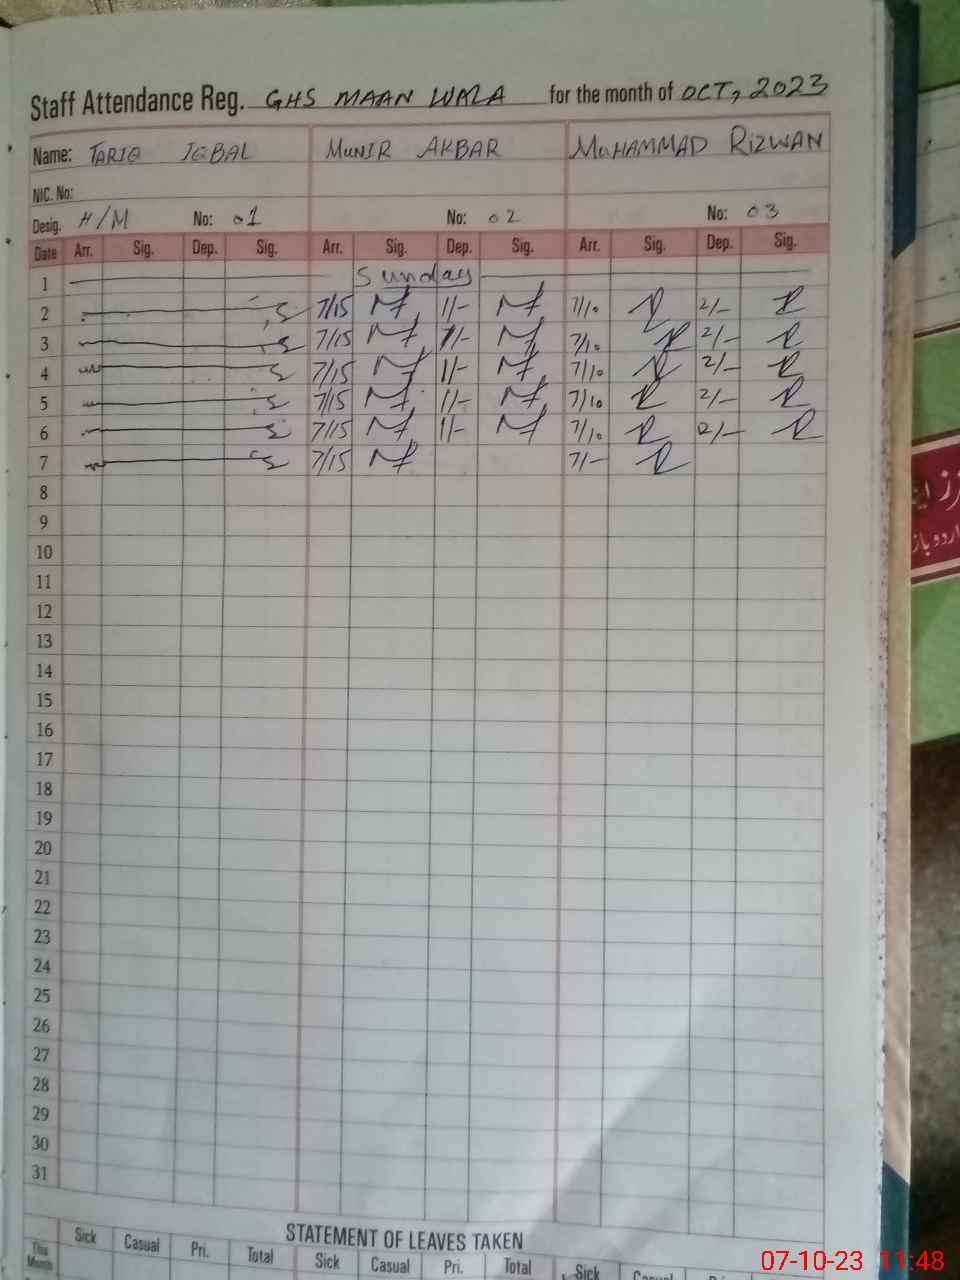 Staff Attendance Reg. GHS MAAN WALA for the month of OCT, 2023
Name: TARIQ IQBAL MUNIR AKBAR MUHAMMAD RIZWAN
NIC. No:
Desig. H/M No: 01 No: 02 No: 03
Date Arr. Sig. Dep. Sig. Arr. Sig. Dep. Sig. Arr. Sig. Dep. Sig.
1 Sunday
2 7/15 1/- 7/10 2/-
3 7/15 1/- 7/10 2/-
4 7/15 1/- 7/10 2/-
5 7/15 1/- 7/10 2/-
6 7/15 1/- 7/10 2/-
7 7/15 7/-
8
9
10
11
12
13
14
15
16
17
18
19
20
21
22
23
24
25
26
27
28
29
30
31
STATEMENT OF LEAVES TAKEN
This Month Sick Casual Pri. Total Sick Casual Pri. Total Sick
07-10-23 11:48